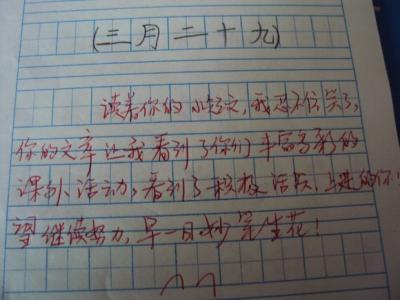 (三月二十九)
读着你的小短文,我忍不住笑了,
你的文章让我看到了你们丰富多彩的
课外活动,看到了积极活跃、上进的你!
望继续努力,早一日妙笔生花!